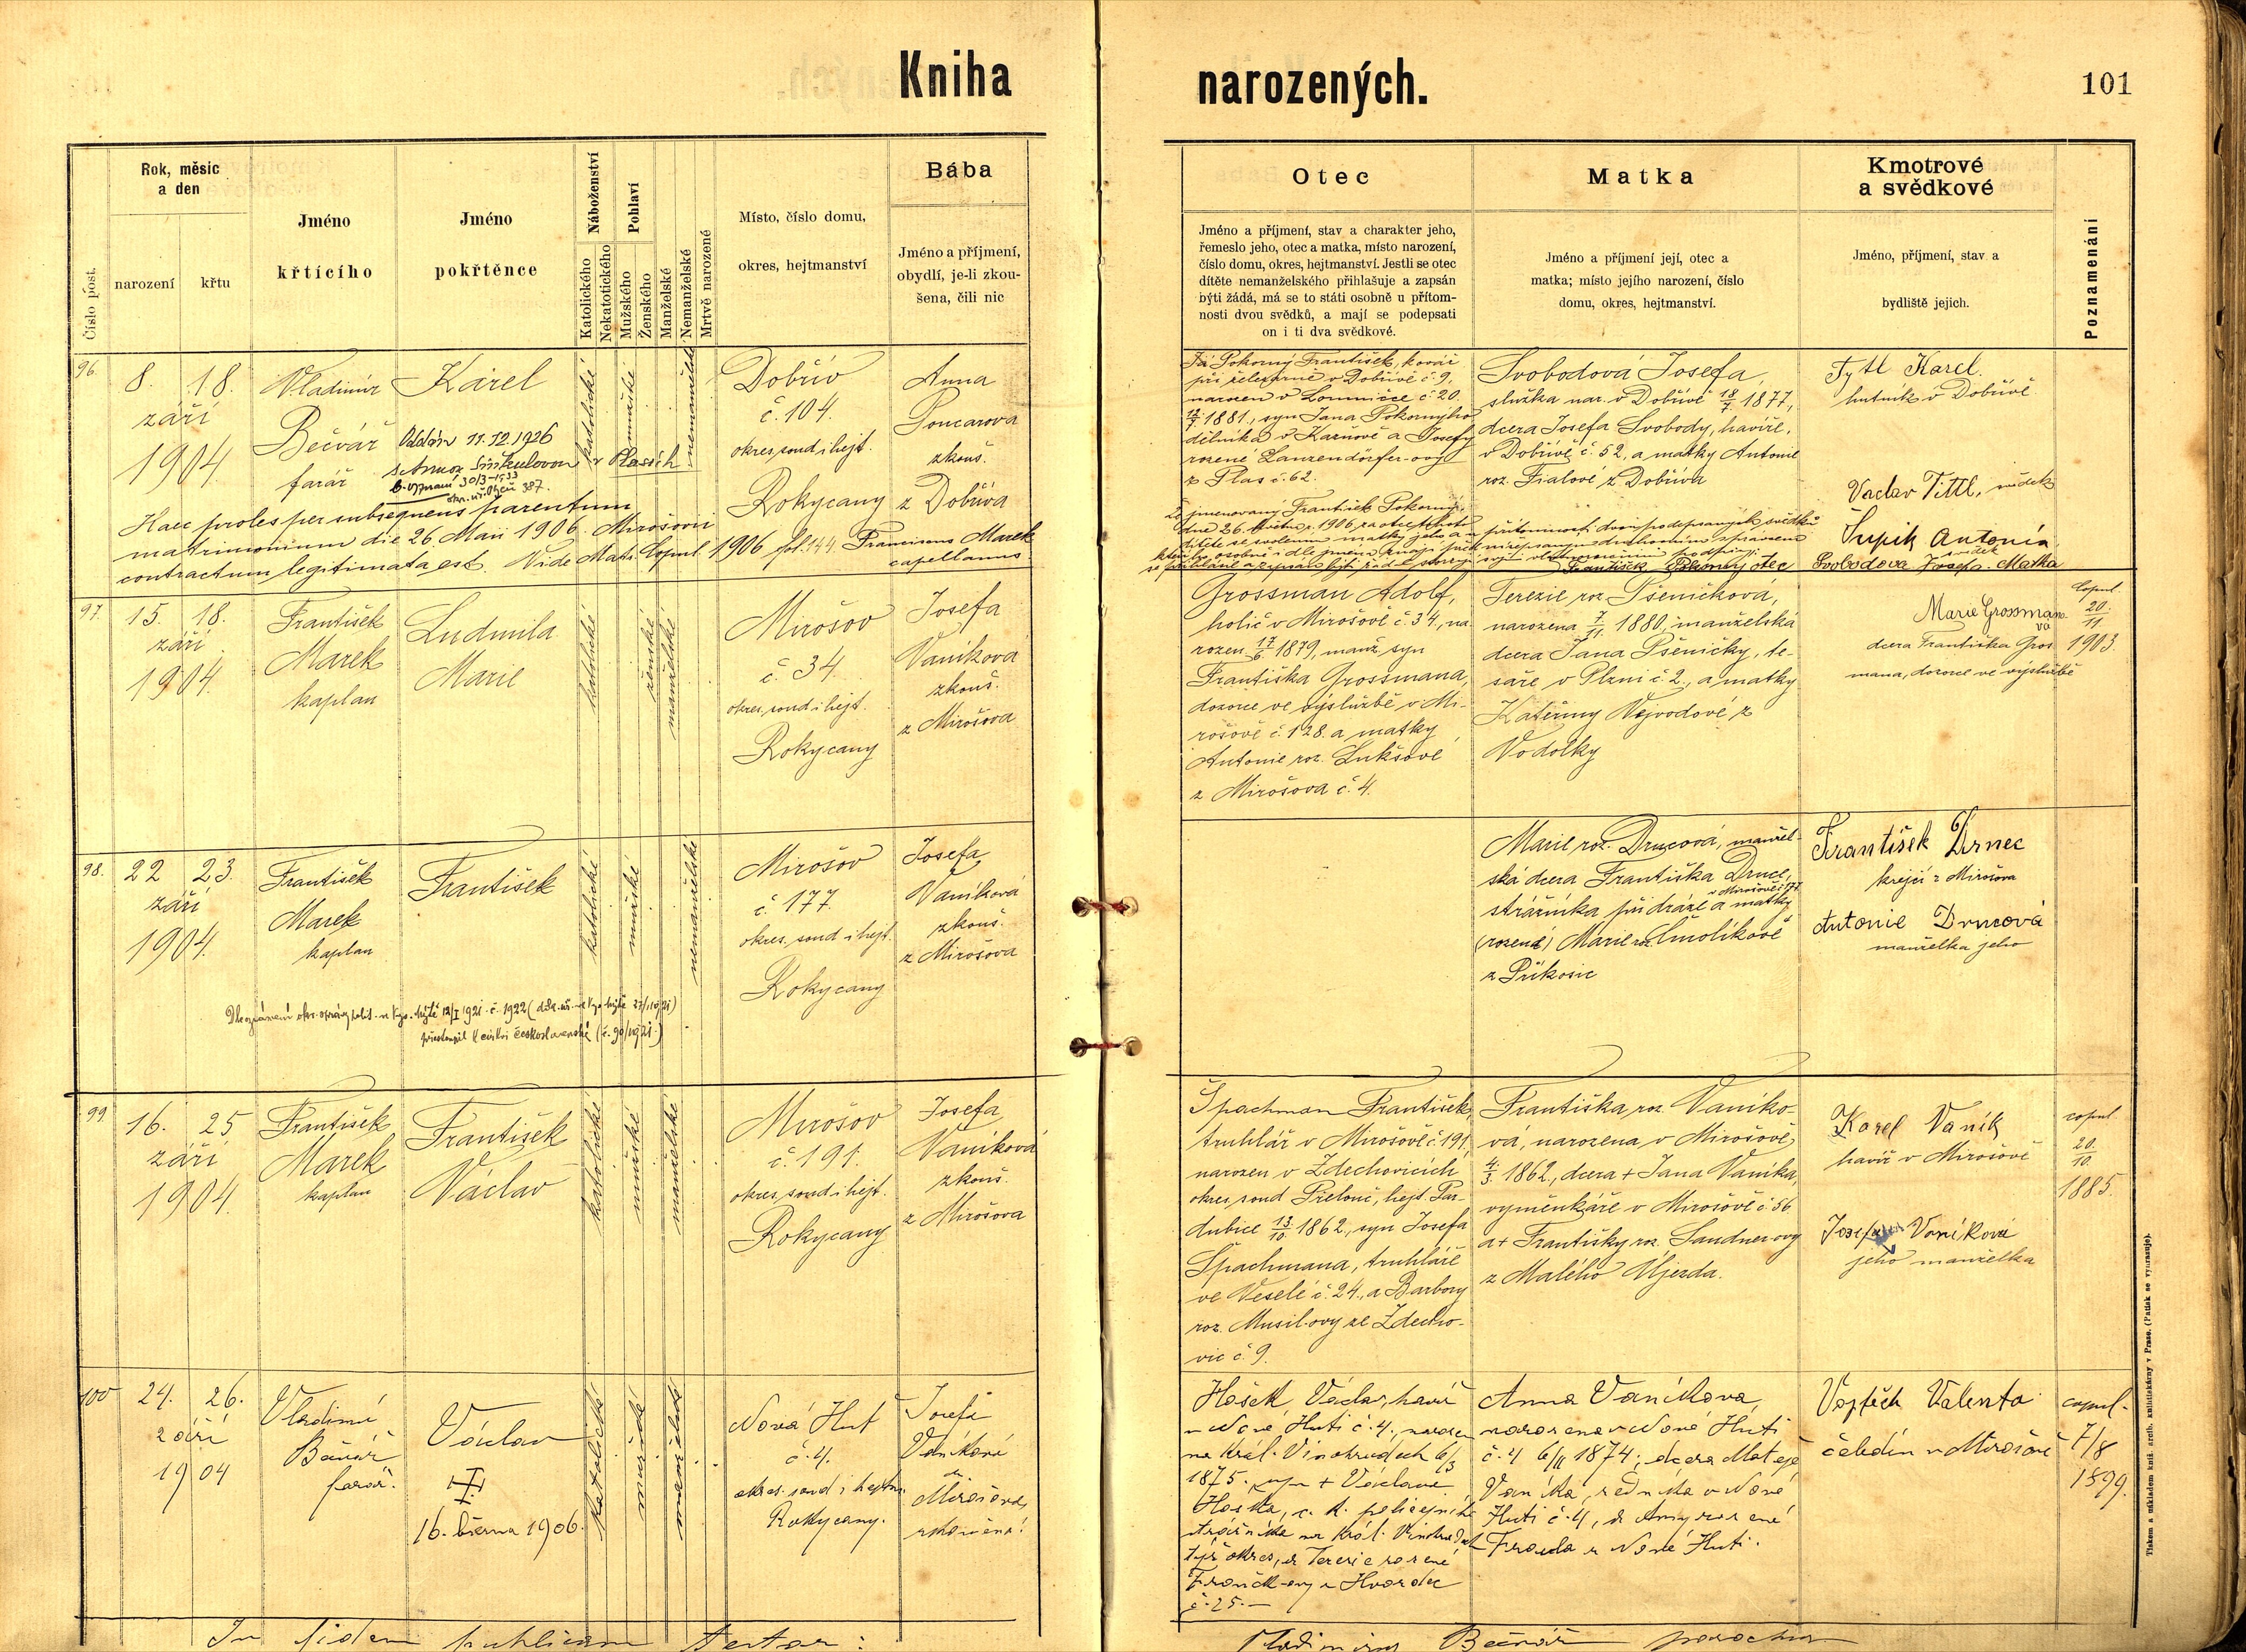 Kniha narozených.
101
Číslo post.
Rok, měsíc
a den
narození
křtu
Jméno
křtícího
Jméno
pokřtěnce
Náboženství
Katolického
Nekatotického
Pohlaví
Mužského
Ženského
Manželské
Nemanželské
Mrtvě narozené
Místo, číslo domu,
okres, hejtmanství
Bába
Jméno a příjmení,
obydlí, je-li zkou-
šena, čili nic
Otec
Jméno a příjmení, stav a charakter jeho,
řemeslo jeho, otec a matka, místo narození,
číslo domu, okres, hejtmanství. Jestli se otec
dítěte nemanželského přihlašuje a zapsán
býti žádá, má se to státi osobně u přítom-
nosti dvou svědků, a mají se podepsati
on i ti dva svědkové.
Matka
Jméno a příjmení její, otec a
matka; místo jejího narození, číslo
domu, okres, hejtmanství.
Kmotrové
a svědkové
Jméno, příjmení, stav a
bydliště jejich.
Poznamenání
96.
8. 18.
září
1904.
Vladimír
Bečvář
farář
Karel
Oddán 11.12.1926
v Plasích
katolické
mužské
nemanželské
Dobřív
č. 104.
okres, soud i hejt.
Rokycany
Anna
Poncarova
zkouš.
z Dobříva
Haec proles per subsequens parentum
matrimonium die 26 Maii 1906 Mirošovii
contractum legitimata est. Vide Matr. Copul. 1906 fol. 144. Franciscus Marek
capellanus
Já Pokorný František, kovář
při železárně v Dobřívě č. 9,
narozen v Lomničce č. 20.
12/7 1881, syn Jana Pokorného
dělníka v Kaznově a Josefy
rozené Lanzendörfer-ovy
z Plas č. 62.
Svobodová Josefa,
služka nar. v Dobřívě 18/7 1877,
dcera Josefa Svobody, havíře,
v Dobřívě č. 52, a matky Antonie
roz. Fialové z Dobříva
Tytl Karel.
hutník v Dobřívě
Vaclav Tittl, svědek
Šupik Antonín
svědek
Svobodova Josefa. Matka
jmenovaný František Pokorný,
dne 26. května r. 1906 za otce tohoto
dítěte se svolením matky jeho a v přítomnosti dvou podepsaných svědků
František Pokorný otec
97.
15. 18.
září
1904.
František
Marek
kaplan
Ludmila
Marie
katolické
ženské
manželské
Mirošov
č. 34.
okres, soud i hejt.
Rokycany
Josefa
Vaníková
zkouš.
z Mirošova
Grossman Adolf,
holič v Mirošově č. 34, na-
rozen 17/6 1879, manž. syn
Františka Grossmana,
dozorce ve výslužbě v Mi-
rošově č. 128. a matky
Antonie roz. Lukšové
z Mirošova č. 4.
Terezie roz. Pšeničková,
narozena 7/11 1880, manželská
dcera Jana Pšeničky, te-
saře v Plzni č. 2., a matky
Kateřiny Vejvodové z
Vodolky
Marie Grossman-
ova
dcera Františka Gros
mana, dozorce ve výslužbě
Copul.
20./11
1903.
98.
22 23.
září
1904.
František
Marek
kaplan
František
katolické
mužské
nemanželské
Mirošov
č. 177.
okres, soud i hejt.
Rokycany
Josefa
Vaníková
zkouš.
z Mirošova
přestoupil k církvi československé (č. 90/1921.)
Marie roz. Drncová, manžel-
ská dcera Františka Drnce,
v Mirošově č. 177
strážníka při dráze a matky
(rozené) Marie roz. Smolíkové
z Příkosic
František Drnec
krejčí z Mirošova
Antonie Drncová
manželka jeho
99.
16. 25
září
1904.
František
Marek
kaplan
František
Václav
katolické
mužské
manželské
Mirošov
č. 191.
okres, soud i hejt.
Rokycany
Josefa
Vaníková
zkouš.
z Mirošova
Špachman František,
truhlář v Mirošově č. 191,
narozen v Zdechovicích,
okres, soud Přelouč, hejt. Par-
dubice 13/10 1862, syn Josefa
Špachmana, truhláře
ve Veselé č. 24., a Barbory
roz. Musil-ovy ze Zdecho-
vic č. 9.
Františka roz. Vaníko-
vá, narozena v Mirošově
4/3. 1862., dcera + Jana Vaníka,
vyměnkáře v Mirošově č. 56
a + Františky roz. Sandner-ovy
z Malého Újezda.
Karel Vaník
havíř v Mirošově
Josefa Vaníková
jeho manželka
copul.
20./10.
1885.
100
24. 26.
září
1904
Vladimír
Bečvář
farář.
Václav
16. března 1906.
katolické
mužské
manželské
Nová Huť
č. 4.
okres. soud i hejtm.
Rokycany.
Josefa
Vaníková
z Mirošova
zkoušená!
Hošek Václav, havíř
v Nové Huti č. 4., narozen
na Král. Vinohradech 6/3
1875. syn + Václava
Hoška, c. k. policejního
strážníka na Král. Vinohradech
týž okres, a Terezie rozené
Franěk-ovy z Hvozdec
č. 25.—
Anna Vaníkova,
narozena v Nové Huti
č. 4 6/11 1874; dcera Matěje
Vaníka, v Nové
Huti č. 4, a Anny rozené
Frouda z Nové Huti.
Vojtěch Valenta
čeledín v Mirošově
copul.
7/8
1899.
In fidem publicam testor:
Vladimirus Bečvář parochus
Tiskem a nákladem kníž. arcib. knihtiskárny v Praze. (Patisk se vyhrazuje).